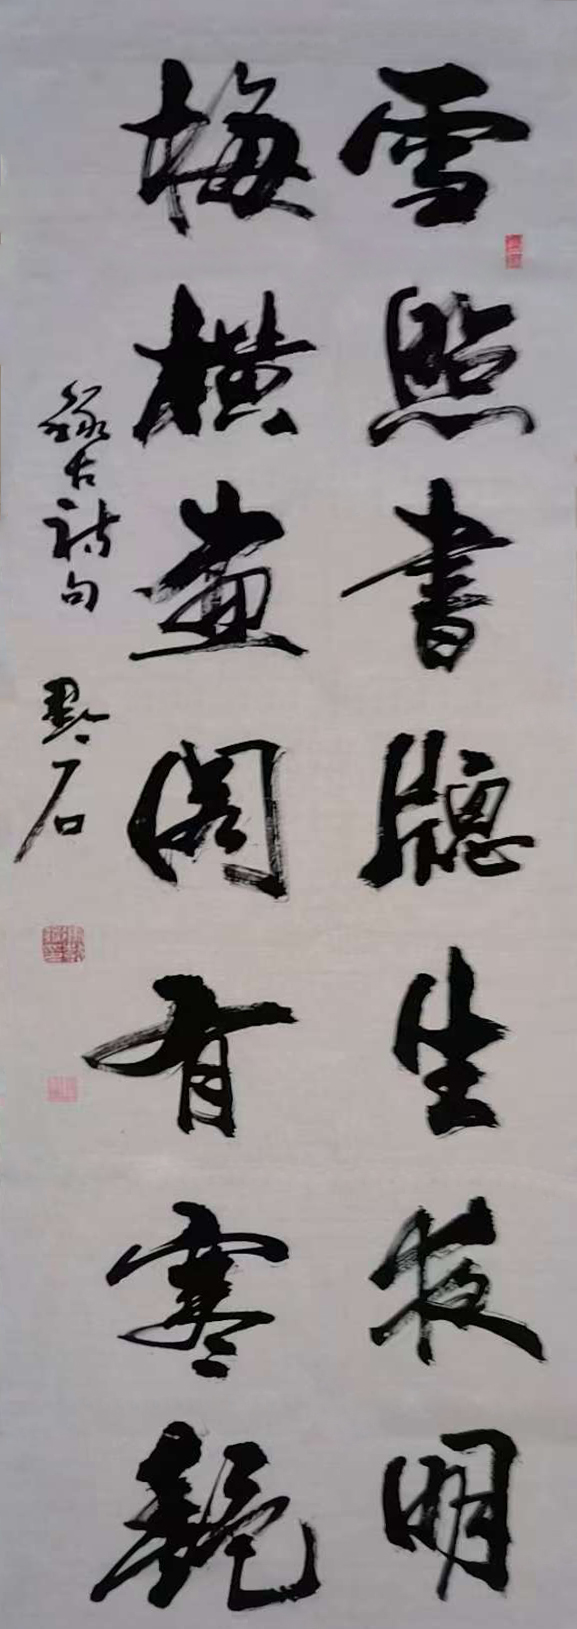 雪照書牕生夜明
梅橫畫閣有寒艷
錄古詩句 黔石